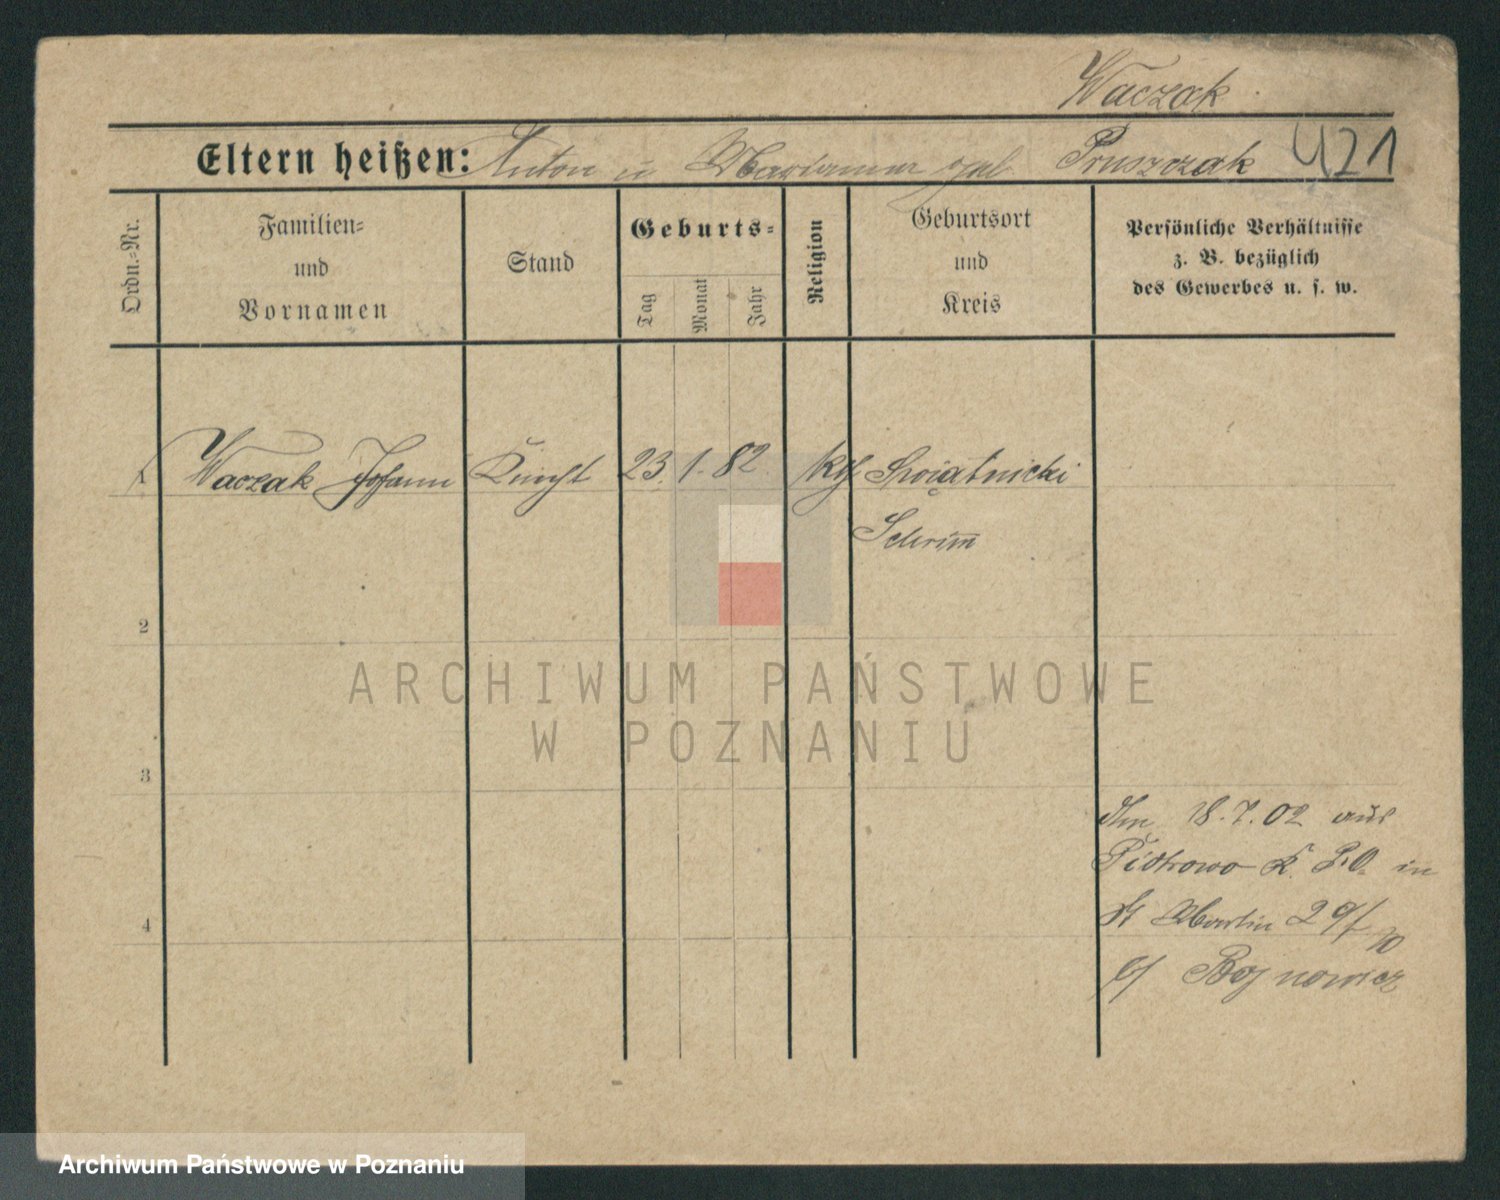 Waczak
Eltern heißen: Anton u Marianna geb Pruszczak 421
Ordn.-Nr.
Familien-
und
Vornamen
Stand
Geburts-
Tag
Monat
Jahr
Religion
Geburtsort
und
Kreis
Persönliche Verhältnisse
z. B. bezüglich
des Gewerbes u. s. w.
1 Waczak Johann Knecht 23. 1. 82 kth Swiątnicki
Schrimm
2
ARCHIWUM PAŃSTWOWE
W POZNANIU
3
18.7.02 aus
Piotrowo K. P.O. in
St Martin 29/
10
4
b/
Archiwum Państwowe w Poznaniu